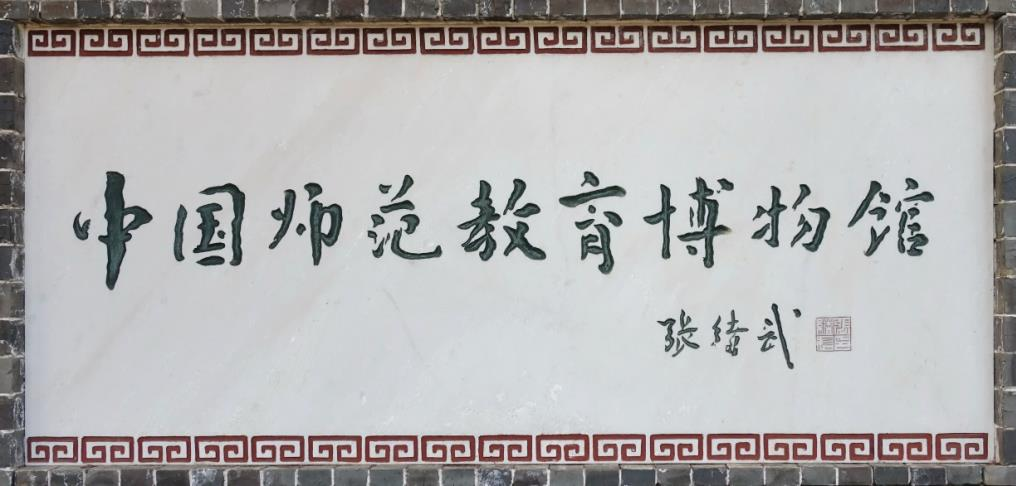 中国师范教育博物馆
张绪武